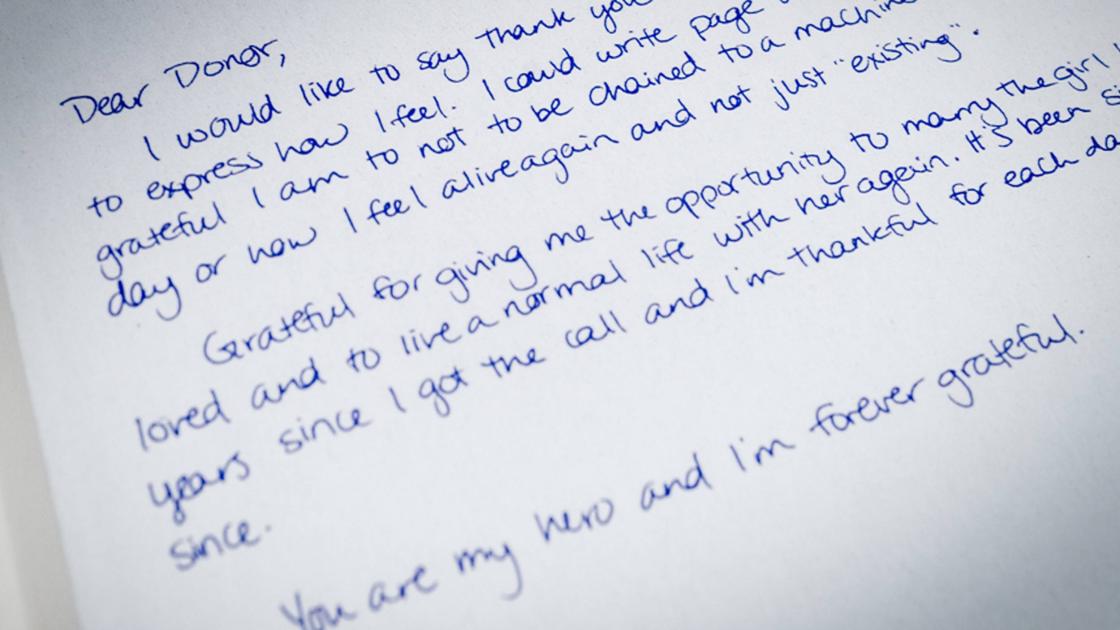 Dear Donor,
I would like to say thank you
to express how I feel. I could write page
grateful I am to not to be chained to a machine
day or how I feel alive again and not just "existing".
Grateful for giving me the opportunity to marry the girl
loved and to live a normal life with her again. It's been
years since I got the call and I'm thankful for each
since.
You are my hero and I'm forever grateful.